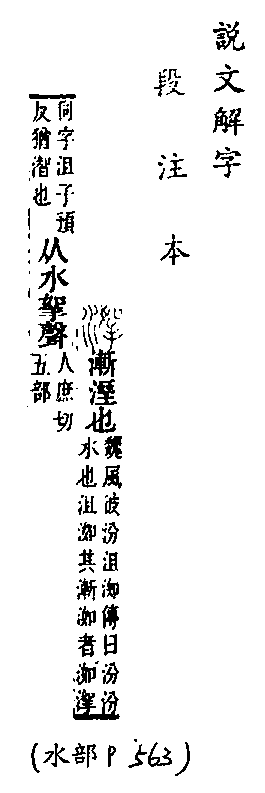 說文解字
段注本
漸溼也
魏風彼汾沮洳傳曰汾汾
水也沮洳其漸洳者洳
同字沮子預
反猶潛也
从水挐聲
人庶切
五部
(水部P563)